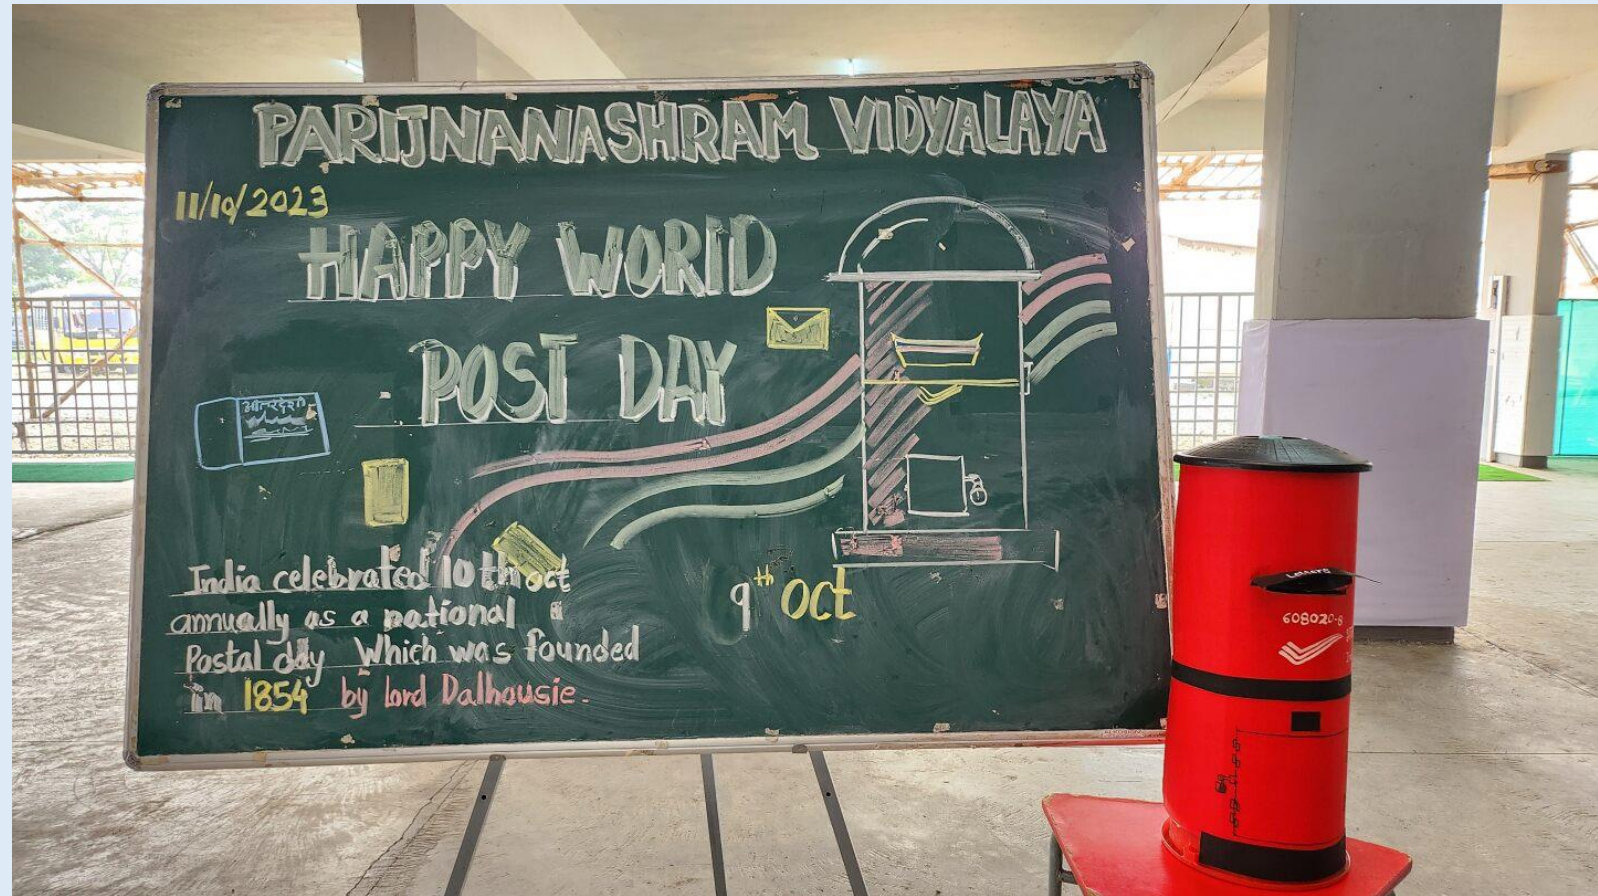 PARIJNANASHRAM VIDYALAYA
11/10/2023
HAPPY WORLD
POST DAY
अंतरदेशी
India celebrated 10th oct
annually as a national
Postal day Which was founded
in 1854 by lord Dalhousie.
9th Oct
Letters
608020-8